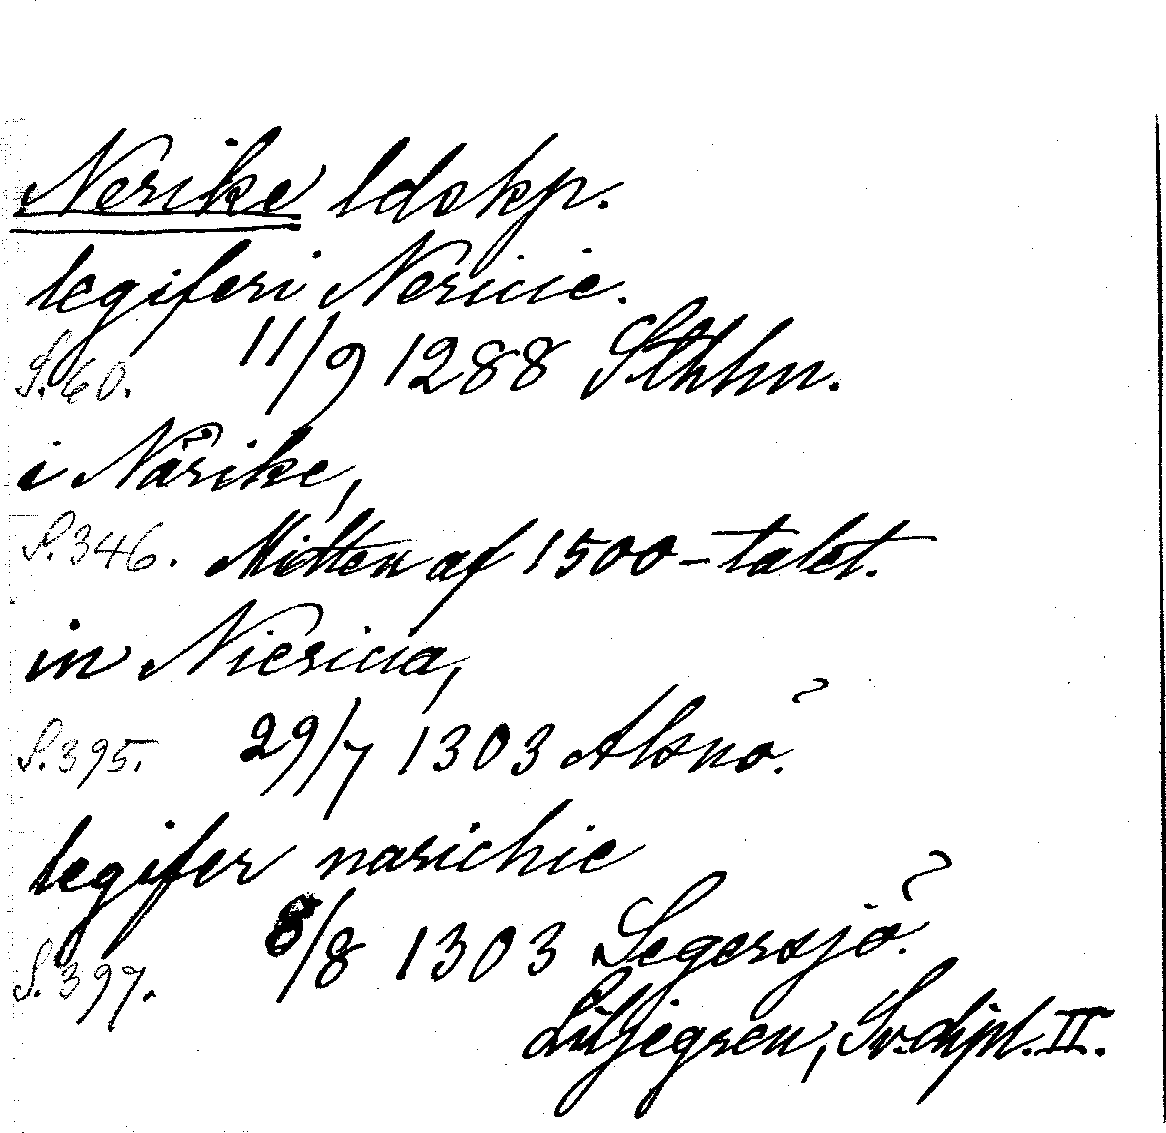 Nerike ldskp.
legiferi Nericie.
S. 60. 11/9 1288 Sthlm.
i Närike,
S. 346. Midten af 1500-talet.
in Niericia,
S. 395. 29/7 1303 Alsnö.
legifer narichie
S. 397. 8/8 1303 Segersjö.
Liljegren, Sv. dipl. II.